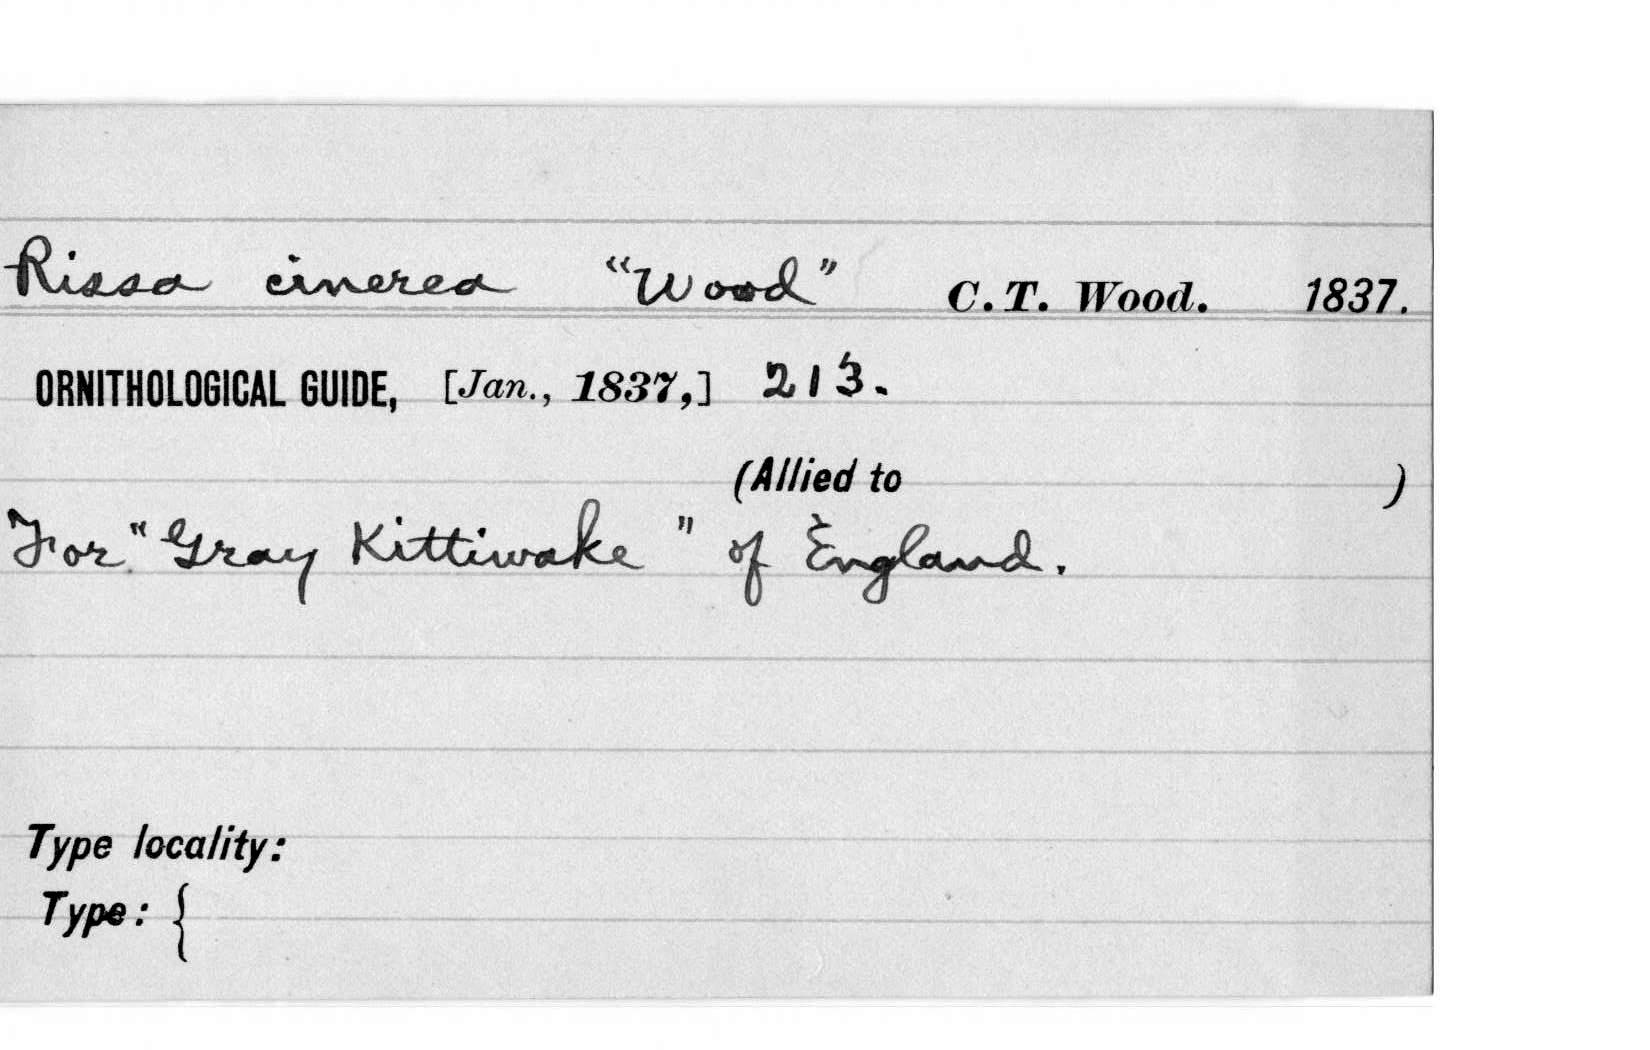 Rissa cinerea "Wood" C. T. Wood. 1837.
ORNITHOLOGICAL GUIDE, [Jan., 1837,] 213.
(Allied to )
For "Gray Kittiwake" of England.
Type locality:
Type: {